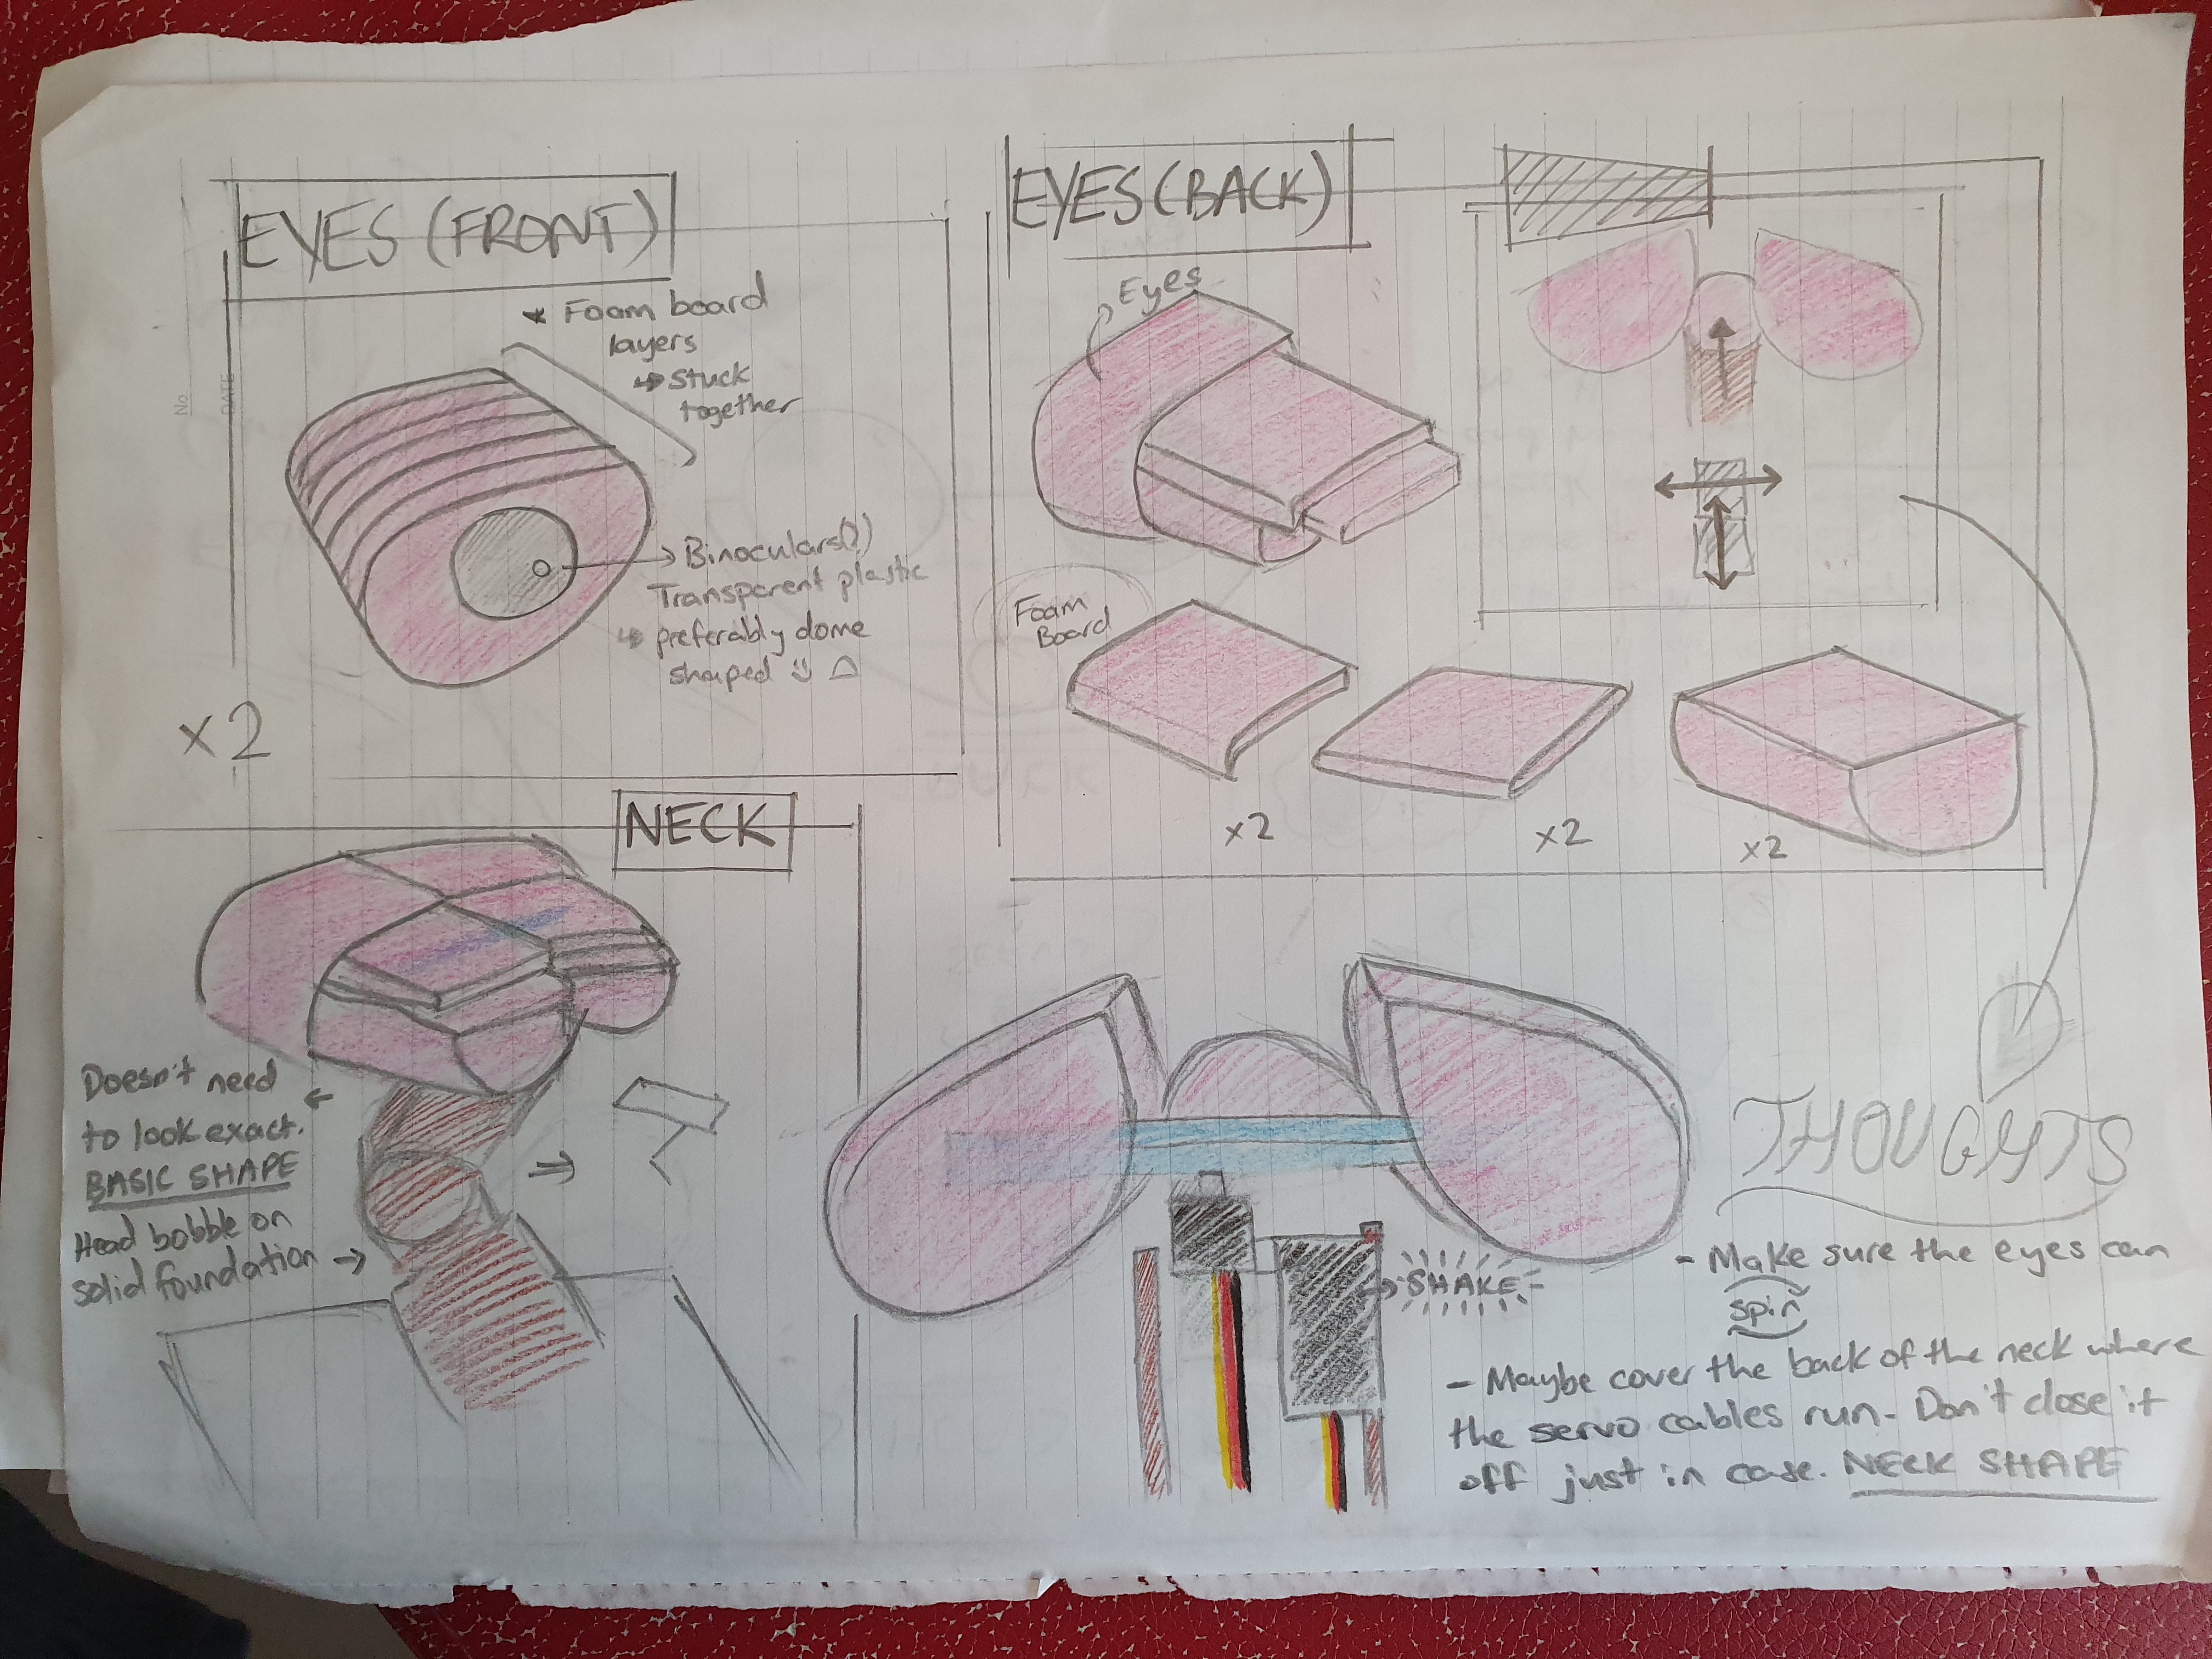 No
DATE
EYES (FRONT)
* Foam board
layers
↳ stuck
together
→ Binoculars(?)
Transparent plastic
↳ preferably dome
shaped
x2
EYES (BACK)
Eyes
Foam
Board
x2
x2
x2
NECK
Doesn't need
to look exact.
BASIC SHAPE
Head bobble on
solid foundation →
SHAKE
THOUGHTS
- Make sure the eyes can
spin
- Maybe cover the back of the neck where
the servo cables run - Don't close it
off just in case. NECK SHAPE